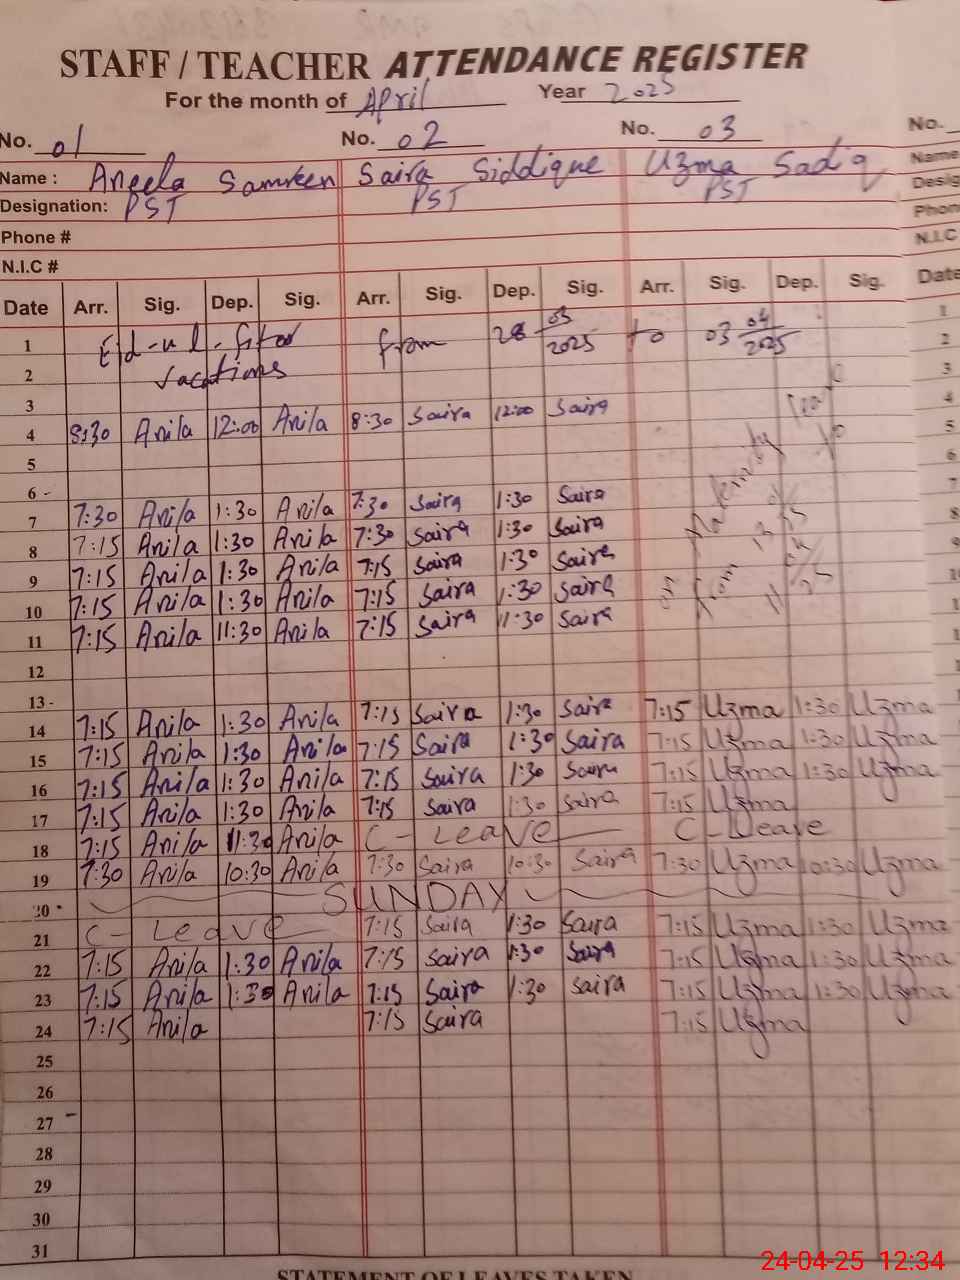 STAFF / TEACHER ATTENDANCE REGISTER
For the month of April Year 2025
No. 01 No. 02 No. 03 No.
Name : Aneela Samreen Saira Siddique Uzma Sadiq Name
Designation: PST PST PST Desig
Phone # Phon
N.I.C # N.I.C
Date Arr. Sig. Dep. Sig. Arr. Sig. Dep. Sig. Arr. Sig. Dep. Sig. Date
1 Eid-ul-fitar from 28 03/2025 to 03 04/2025 1
2 vacations 2
3 3
4 8:30 Anila 12:00 Anila 8:30 Saira 12:00 Saira 4
5 5
6 - 6
7 7:30 Anila 1:30 Anila 7:30 Saira 1:30 Saira 7
8 7:15 Anila 1:30 Anila 7:30 Saira 1:30 Saira 8
9 7:15 Anila 1:30 Anila 7:15 Saira 1:30 Saira 9
10 7:15 Anila 1:30 Anila 7:15 Saira 1:30 Saira
11 7:15 Anila 11:30 Anila 7:15 Saira 11:30 Saira
on from 11
12
13 -
14 7:15 Anila 1:30 Anila 7:15 Saira 1:30 Saira 7:15 Uzma 1:30 Uzma
15 7:15 Anila 1:30 Anila 7:15 Saira 1:30 Saira 7:15 Uzma 1:30 Uzma
16 7:15 Anila 1:30 Anila 7:15 Saira 1:30 Saira 7:15 Uzma 1:30 Uzma
17 7:15 Anila 1:30 Anila 7:15 Saira 1:30 Saira 7:15 Uzma
18 7:15 Anila 11:30 Anila C - Leave C - Leave
19 7:30 Anila 10:30 Anila 7:30 Saira 10:30 Saira 7:30 Uzma 10:30 Uzma
20 SUNDAY
21 C - Leave 7:15 Saira 1:30 Saira 7:15 Uzma 1:30 Uzma
22 7:15 Anila 1:30 Anila 7:15 Saira 1:30 Saira 7:15 Uzma 1:30 Uzma
23 7:15 Anila 1:30 Anila 7:15 Saira 1:30 Saira 7:15 Uzma 1:30 Uzma
24 7:15 Anila 7:15 Saira 7:15 Uzma
25
26
27 -
28
29
30
31
STATEMENT OF LEAVES TAKEN
24-04-25 12:34